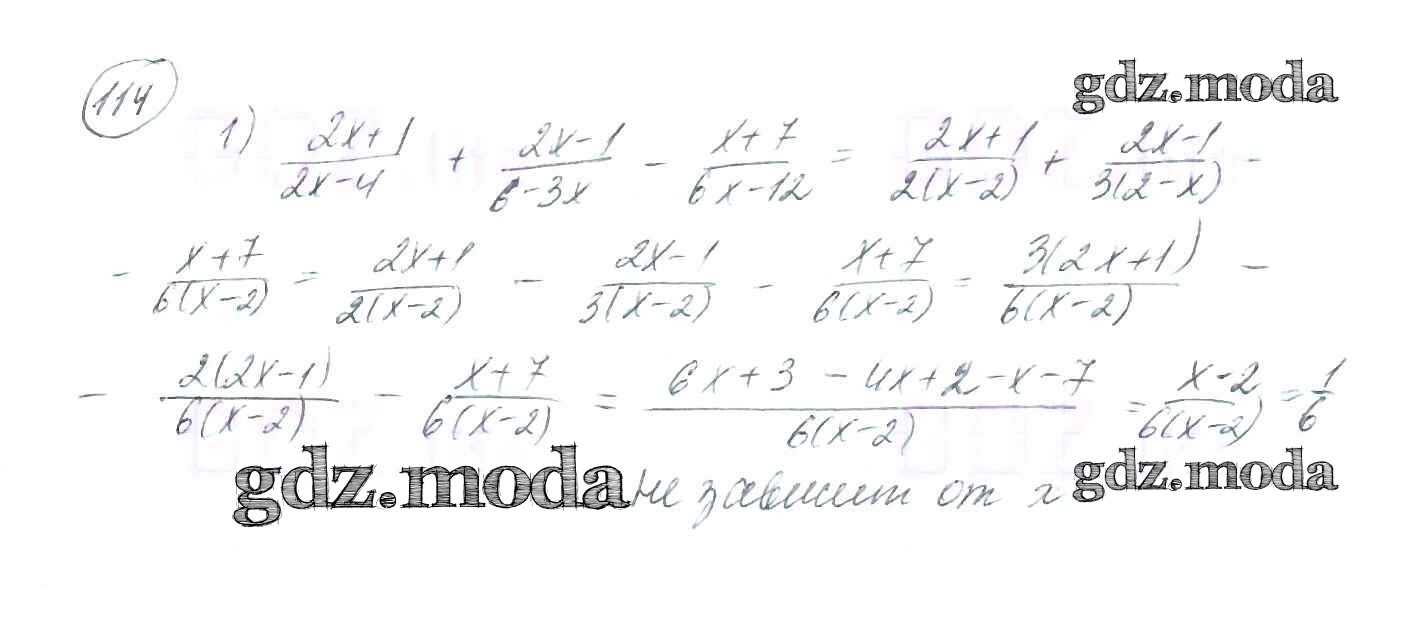 114
gdz.moda
1) (2x+1)/(2x-4) + (2x-1)/(6-3x) - (x+7)/(6x-12) = (2x+1)/(2(x-2)) + (2x-1)/(3(2-x)) -
- (x+7)/(6(x-2)) = (2x+1)/(2(x-2)) - (2x-1)/(3(x-2)) - (x+7)/(6(x-2)) = (3(2x+1))/(6(x-2)) -
- (2(2x-1))/(6(x-2)) - (x+7)/(6(x-2)) = (6x+3-4x+2-x-7)/(6(x-2)) = (x-2)/(6(x-2)) = 1/6
gdz.moda не зависит от x gdz.moda